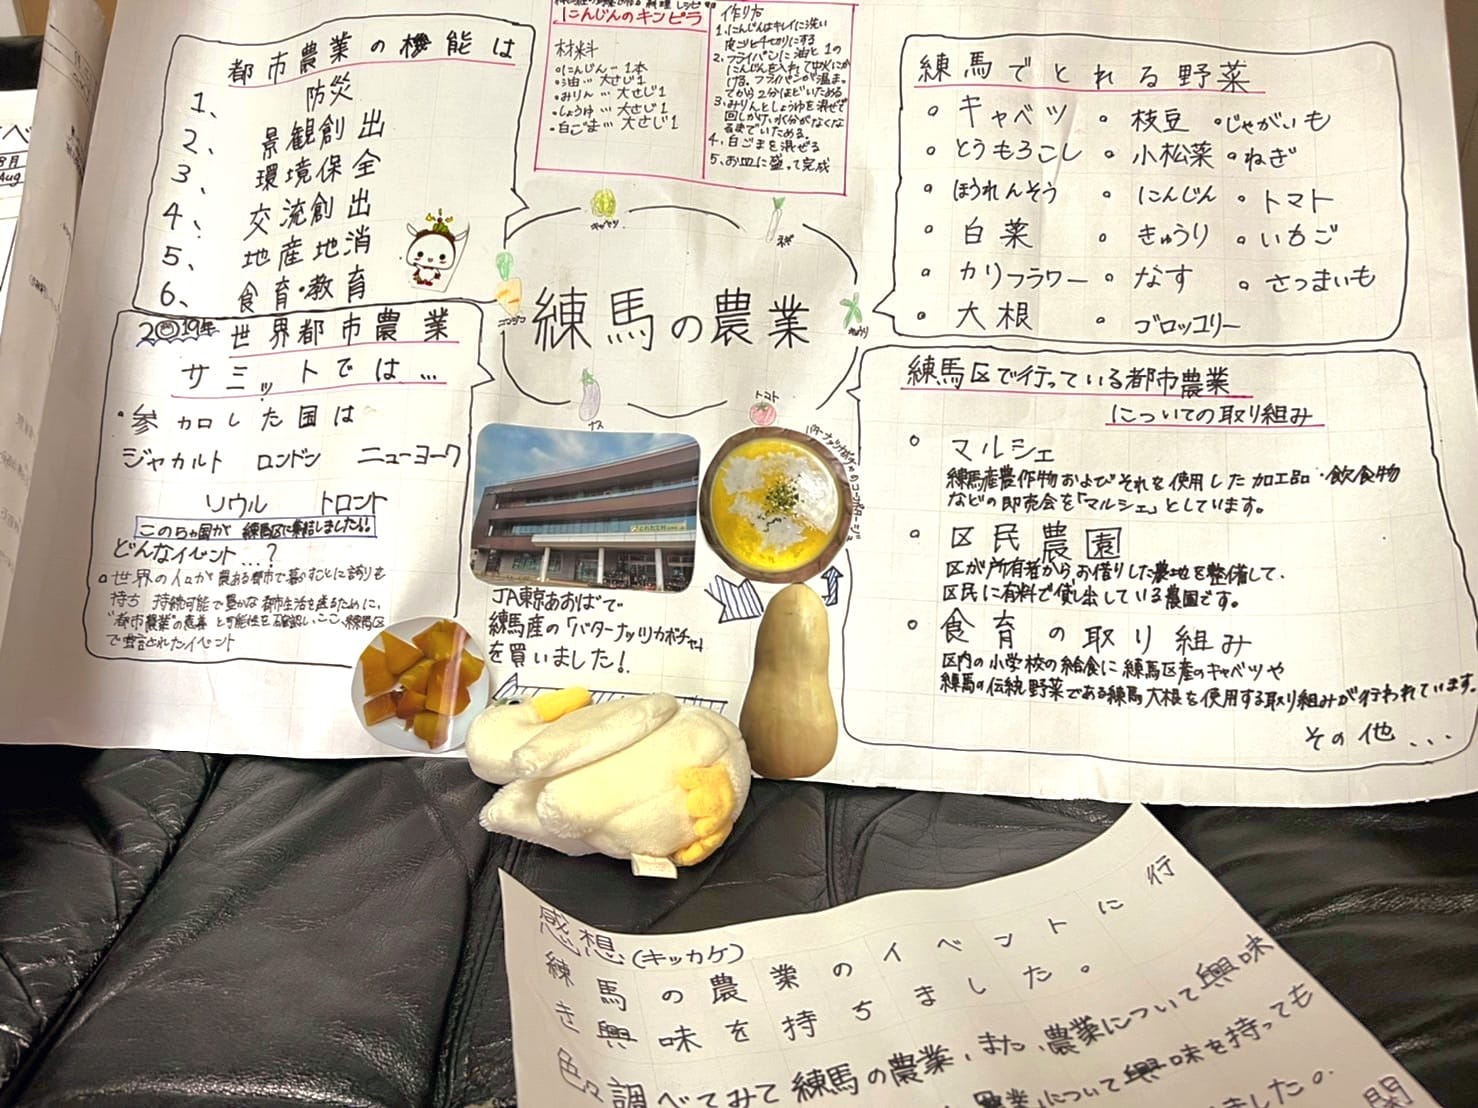 都市農業の機能は
1、防災
2、景観創出
3、環境保全
4、交流創出
5、地産地消
6、食育・教育
2019年 世界都市農業
サミットでは…
・参加した国は
ジャカルト ロンドン ニューヨーク
ソウル トロント
この5ヵ国が 練馬区に集結しました!!
どんなイベント…?
世界の人々が農ある都市で暮らすことに誇りを
持ち 持続可能で豊かな都市生活を送るために、
"都市農業"の意義 と可能性を確認し、ここ、練馬区
で宣言されたイベント
にんじんのキンピラ
材料
・にんじん… 1本
・油… 大さじ1
・みりん… 大さじ1
・しょうゆ… 大さじ1
・白ごま… 大さじ1
作り方
1.にんじんはキレイに洗い
皮ごと千切りにする
2.フライパンに油と1の
にんじんを入れて中火にか
ける。フライパンが温ま
ってから2分ほどいためる
3.みりんとしょうゆを混ぜて
回しかけ、水分がなくな
るまでいためる。
4.白ごまを混ぜる
5.お皿に盛って完成
キャベツ
ネギ
ニンジン
きゅうり
ナス
トマト
練馬の農業
バターナッツカボチャのコーンポタージュ
JA東京あおばで
練馬産の「バターナッツカボチャ」
を買いました!
練馬でとれる野菜
・キャベツ ・枝豆 ・じゃがいも
・とうもろこし ・小松菜 ・ねぎ
・ほうれんそう ・にんじん ・トマト
・白菜 ・きゅうり ・いちご
・カリフラワー ・なす ・さつまいも
・大根 ・ブロッコリー
練馬区で行っている都市農業
についての取り組み
・マルシェ
練馬産農作物およびそれを使用した加工品・飲食物
などの即売会を「マルシェ」としています。
・区民農園
区が所有者からお借りした農地を整備して、
区民に有料で貸し出している農園です。
・食育の取り組み
区内の小学校の給食に練馬区産のキャベツや
練馬の伝統野菜である練馬大根を使用する取り組みが行われています。
その他...
感想(キッカケ)
練馬の農業のイベントに行
き興味を持ちました。
色々調べてみて練馬の農業、また、農業について興味
農業について興味を持っても
ました。
8月
Aug